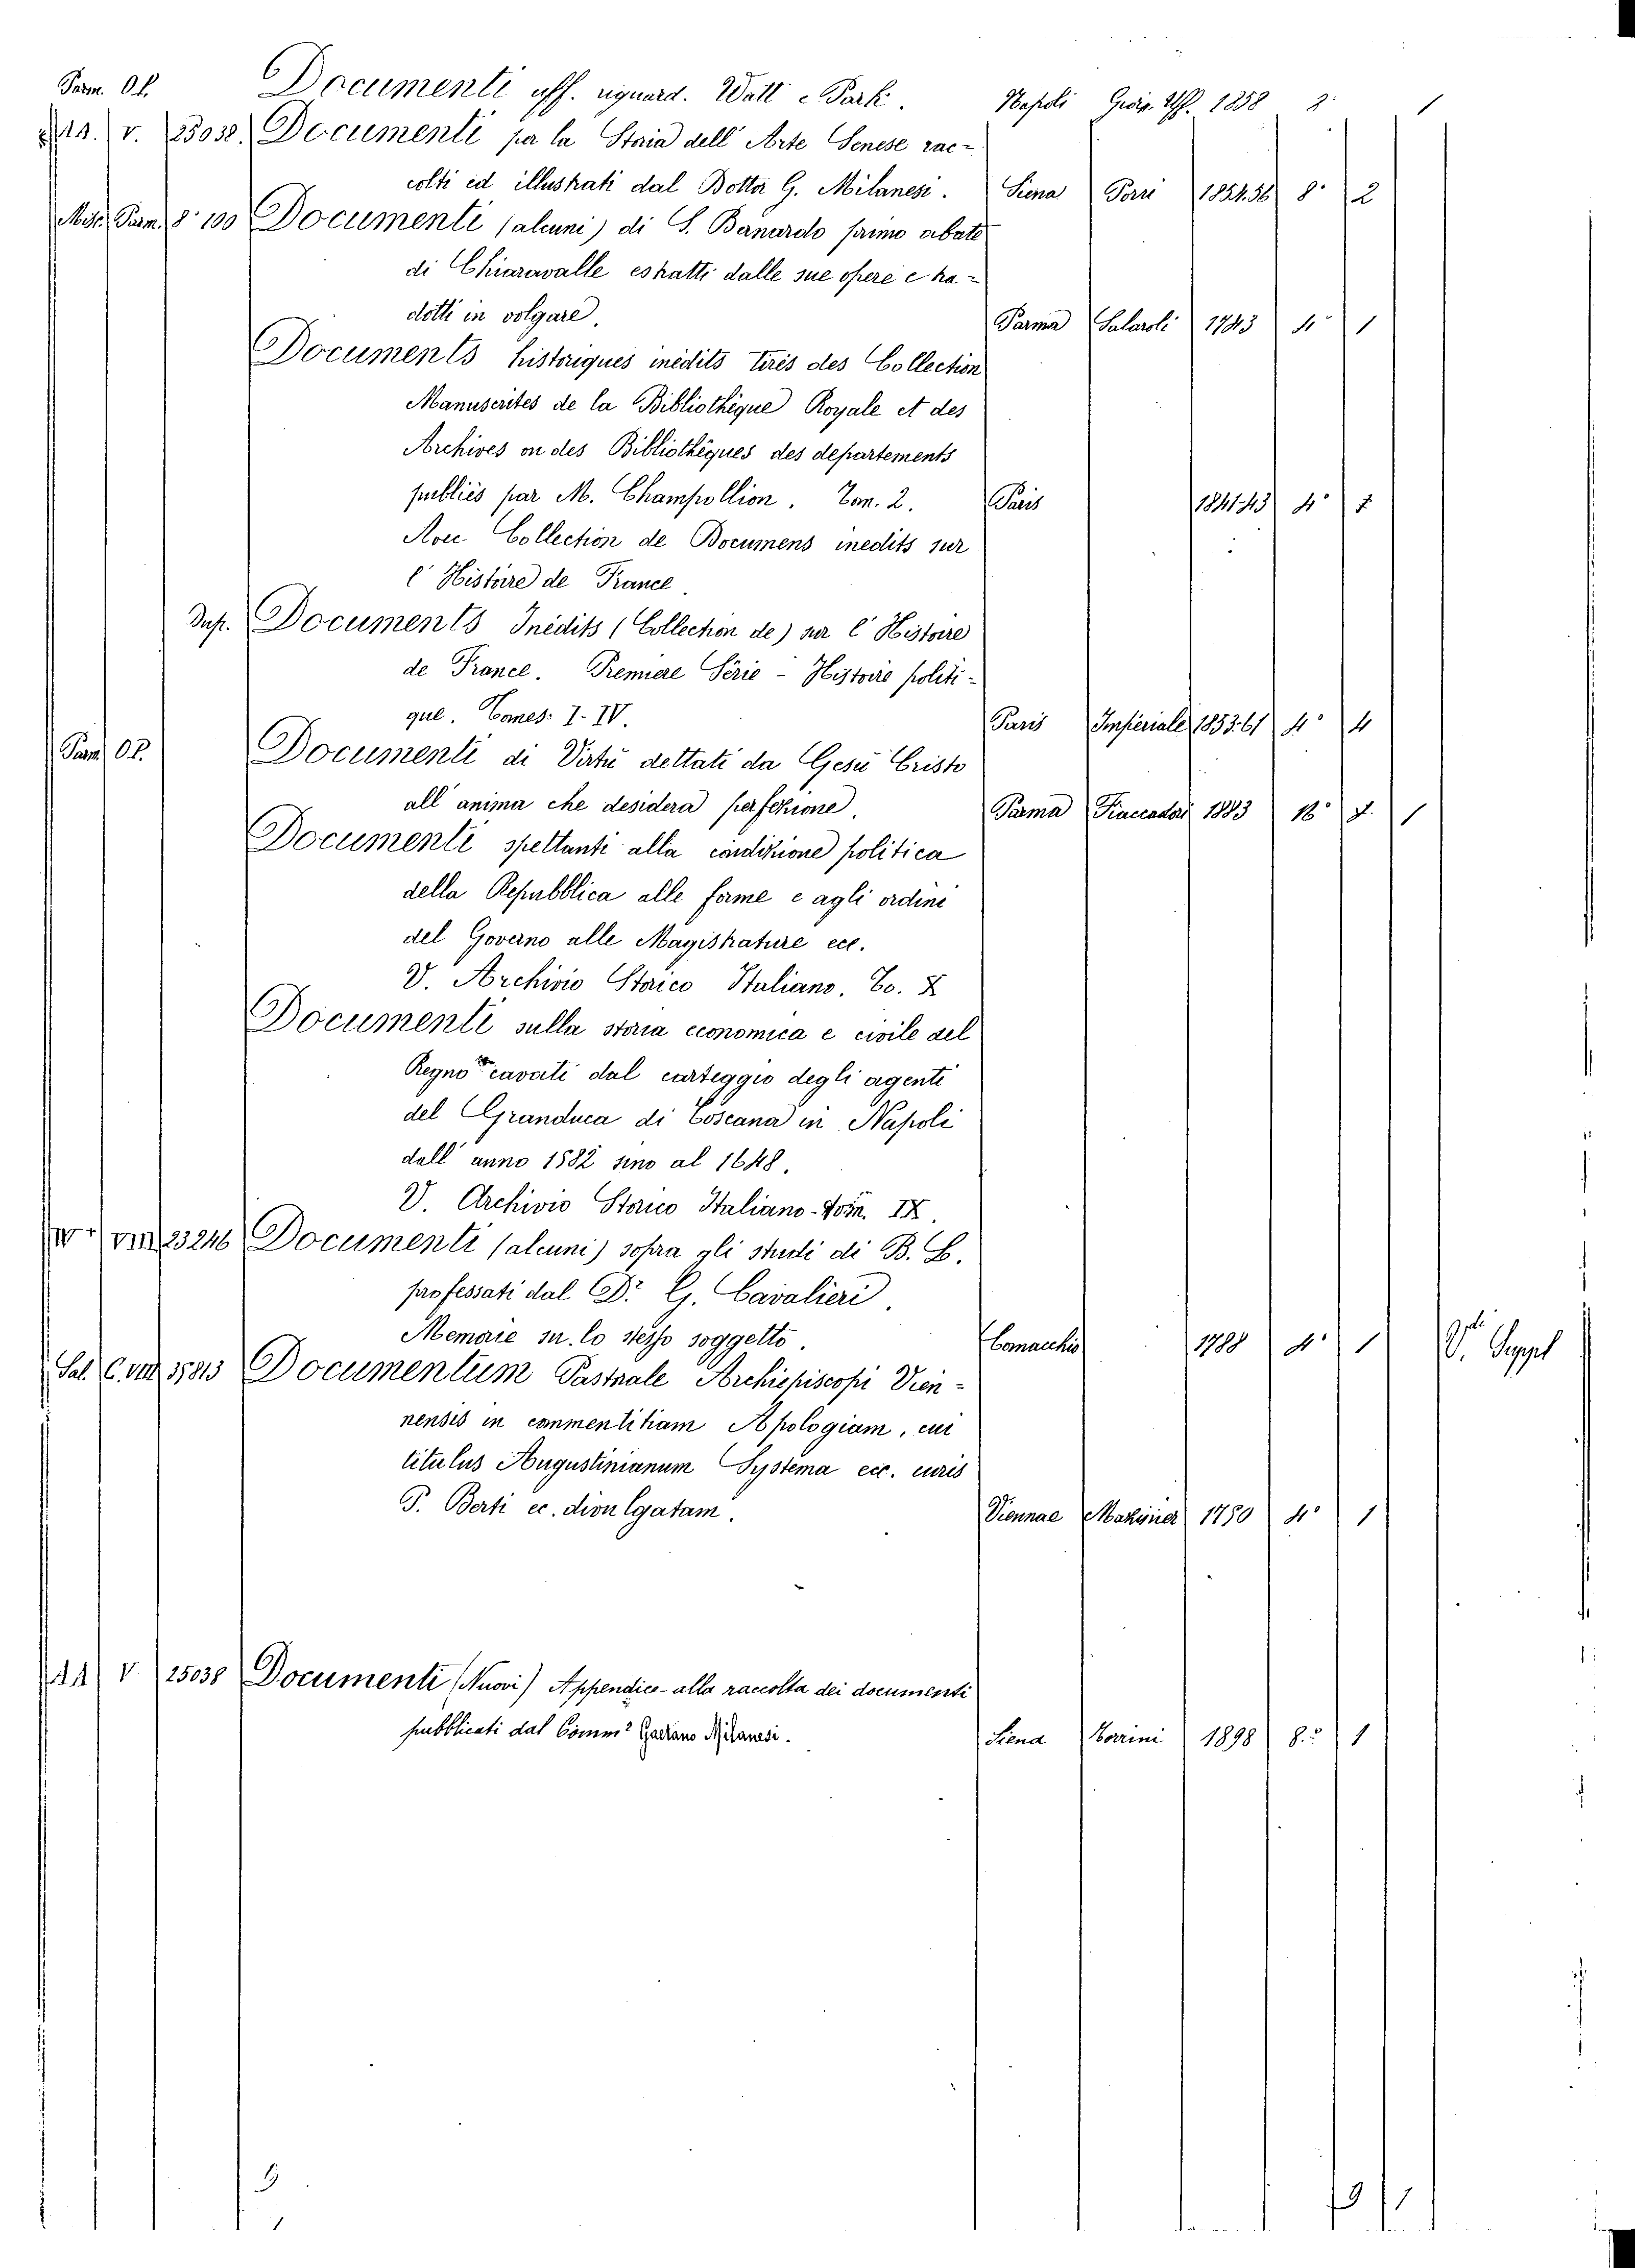 Parm. Op. Documenti uff. riguard. Watt e Park. Napoli Giorn. Uff. 1858 8° 1
AA. V. 25038. Documenti per la Storia dell'Arte Senese rac-
colti ed illustrati dal Dottor G. Milanesi. Siena Porri 1854.56 8° 2
Misc. Parm. 8° 100 Documenti (alcuni) di S. Bernardo primo abate
di Chiaravalle estratti dalle sue opere e tra-
dotti in volgare. Parma Salaroli 1743 4° 1
Documents historiques inédits tirés des Collection
Manuscrites de la Bibliothèque Royale et des
Archives on des Bibliothèques des departements
publiés par M. Champollion. Tom. 2. Paris 1841-43 4°
Avec Collection de Documens inedits sur
l'Histoire de France.
Documents Inédits (Collection de) sur l'Histoire
de France. Premiere Série - Histoire politi-
que. Tomes. I-IV. Paris Impériale 1853-61 4° 4
Parm. Op. Documenti di Virtù dettati da Gesù Cristo
all'anima che desidera perfezione. Parma Fiaccadori 1883 16° 1
Documenti spettanti alla condizione politica
della Repubblica alle forme e agli ordini
del Governo alle Magistrature ecc.
V. Archivio Storico Italiano. To. X
Documenti sulla storia economica e civile del
Regno cavati dal carteggio degli agenti
del Granduca di Toscana in Napoli
dall'anno 1582 sino al 1648.
V. Archivio Storico Italiano. Tom. IX.
VIII 23246 Documenti (alcuni) sopra gli studi di B. B.
professati dal Dr. G. Cavalieri.
Memorie su lo stesso soggetto. Comacchio 1788 4° 1 V. Suppl
Sal. C. VIII 15813 Documentum Pastorale Archiepiscopi Vien-
nensis in commentitiam Apologiam, cui
titulus Augustinianum Systema ecc. curis
P. Berti ec. divulgatam. Viennae 1750 4° 1
AA V 25038 Documenti (Nuovi) Appendice alla raccolta dei documenti
pubblicati dal Comm. Gaetano Milanesi. Siena Torrini 1898 8.° 1
9 1